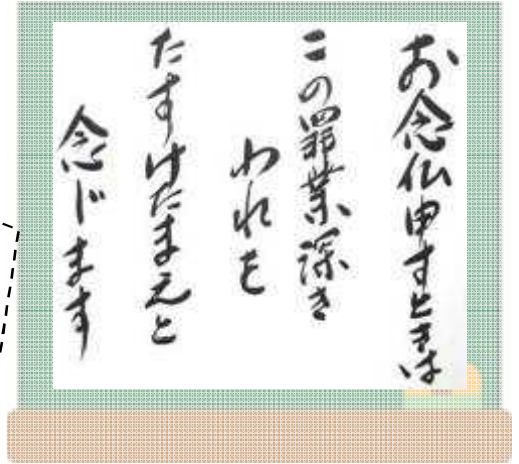 お念仏申すときは
この罪業深き
われを
たすけたまえと
念じます